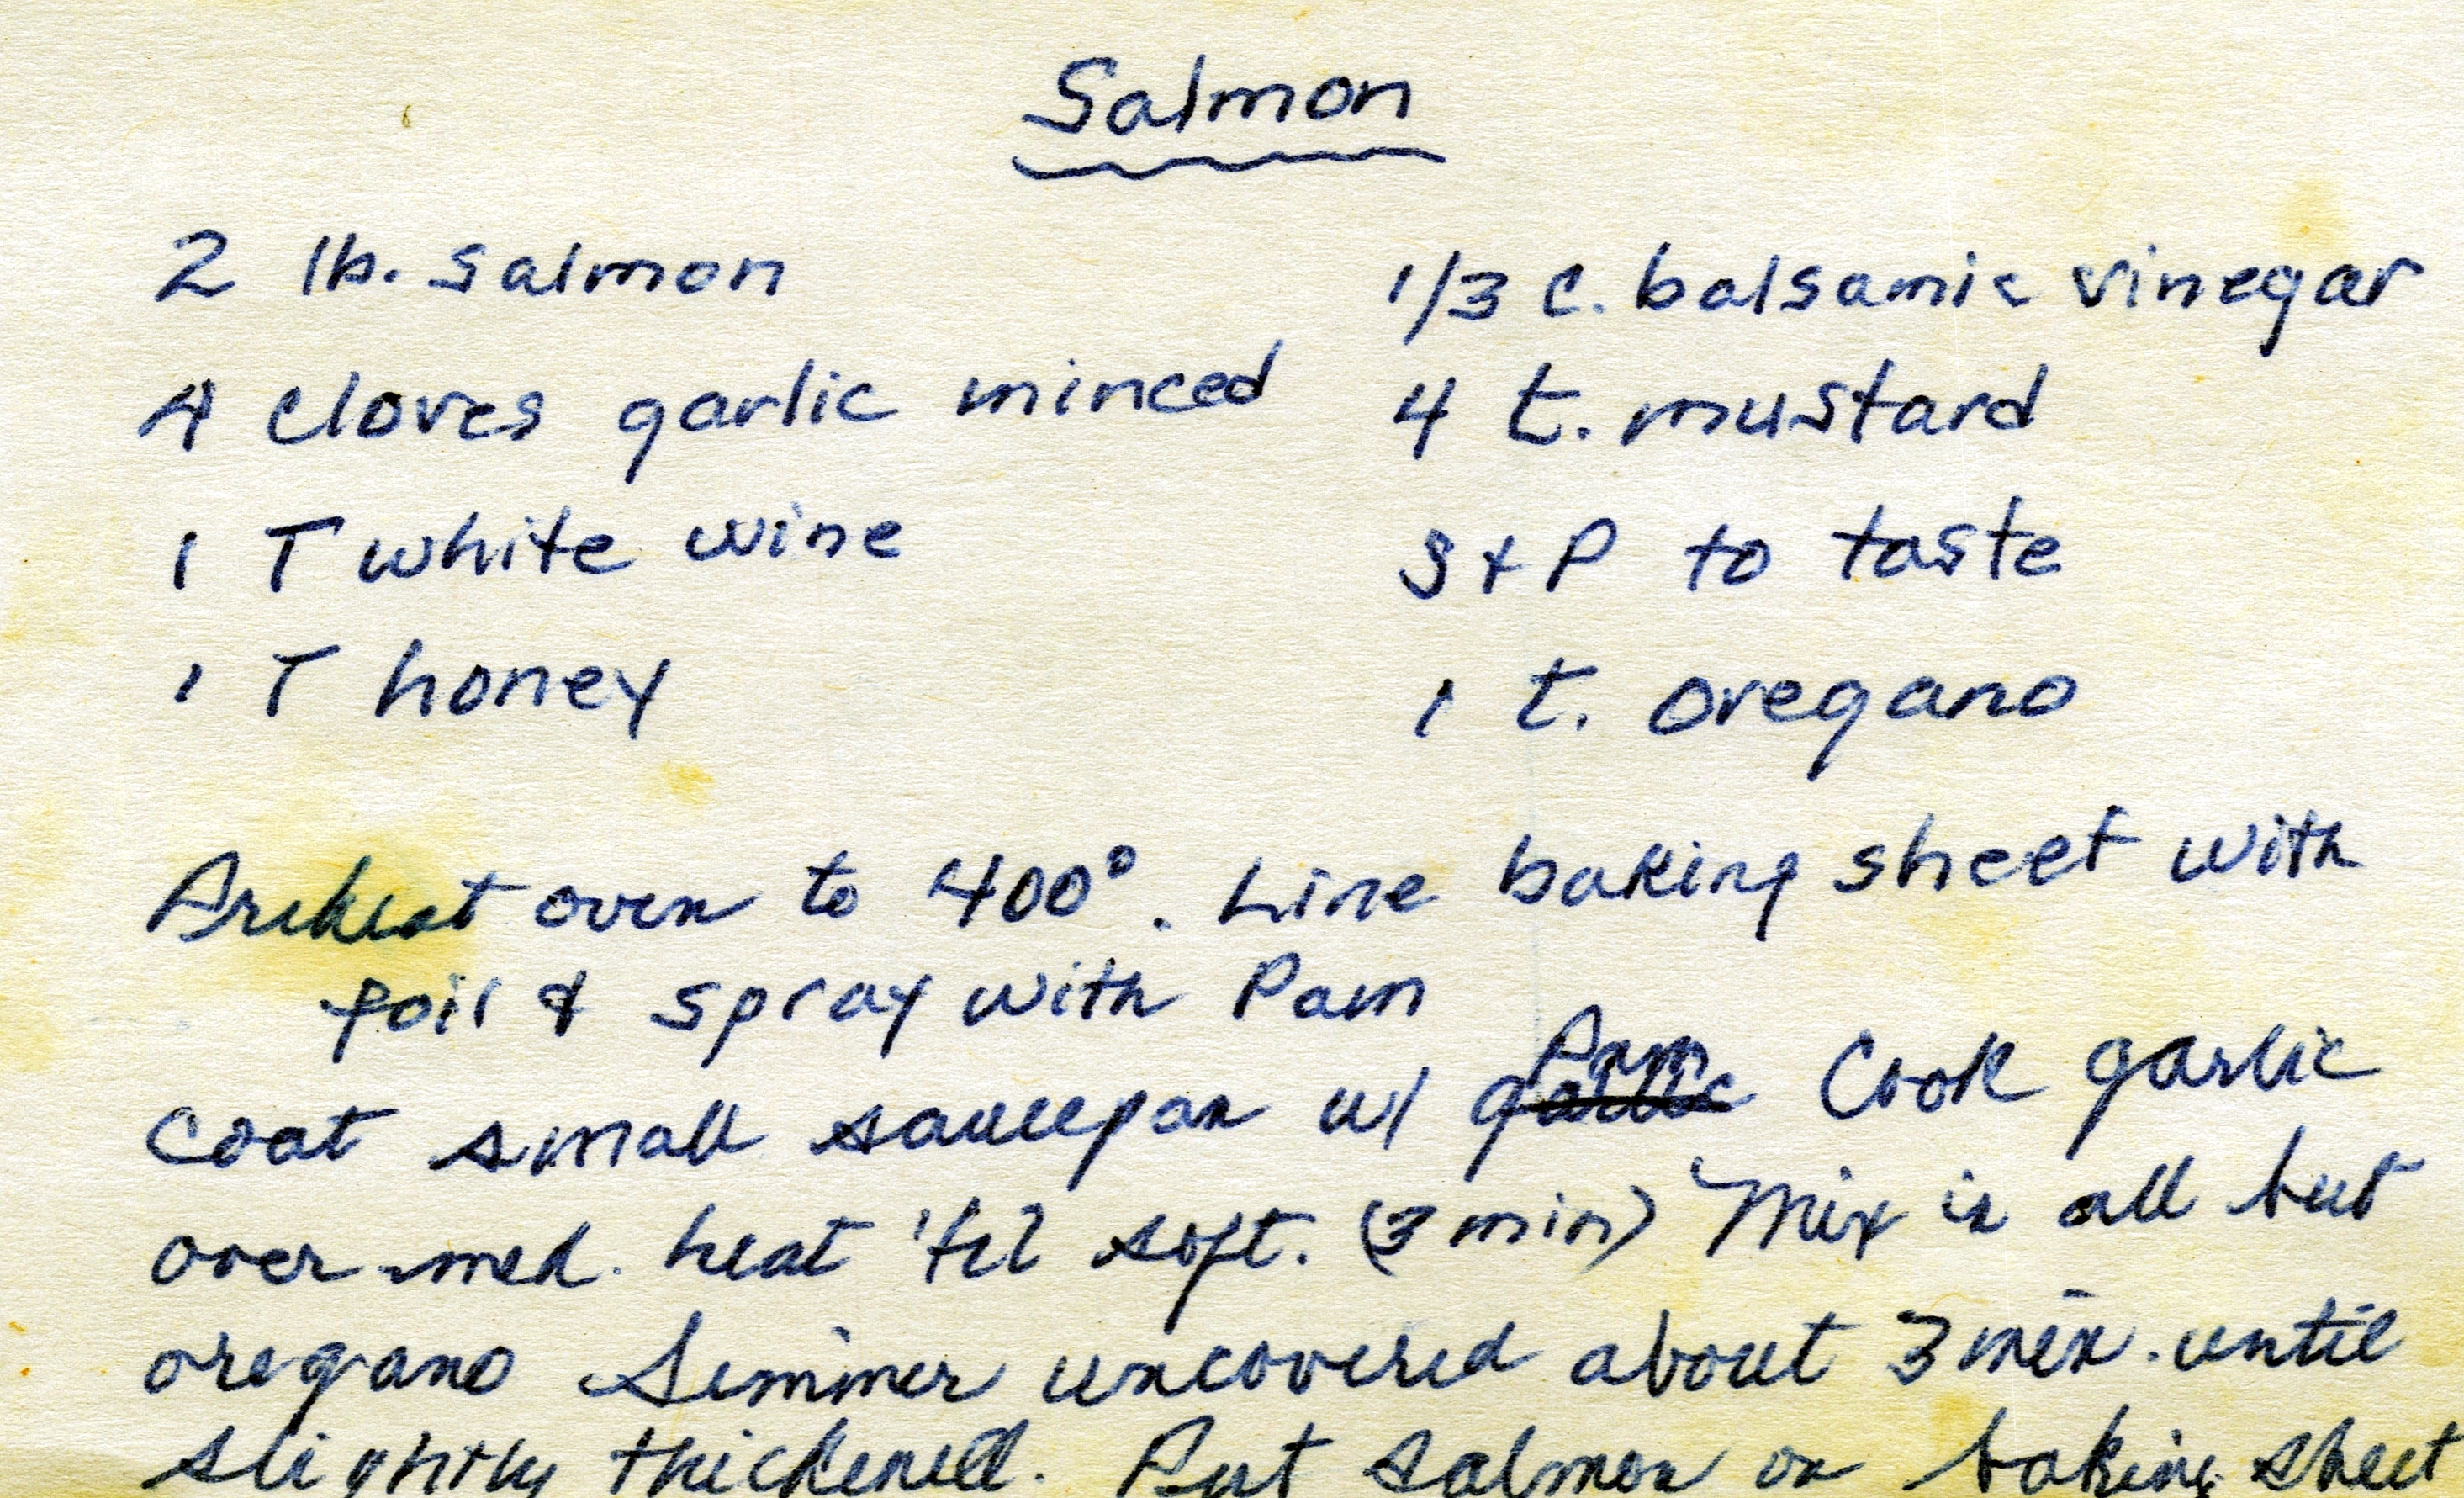 Salmon
2 lb. salmon 1/3 c. balsamic vinegar
4 cloves garlic minced 4 t. mustard
1 T white wine S + P to taste
1 T honey 1 t. oregano
Preheat oven to 400°. Line baking sheet with
foil & spray with Pam
Pam
Coat small saucepan w/ garlic Cook garlic
over med. heat 'til soft. (3 min) Mix in all but
oregano Simmer uncovered about 3 min. until
slightly thickened. Put salmon on baking sheet